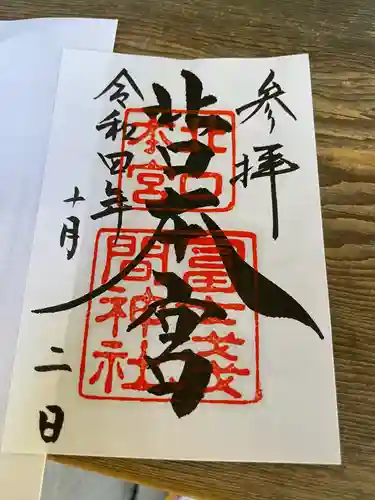 参拝
若本宮
北口本宮
冨士浅間神社
令和四年
十月
二日